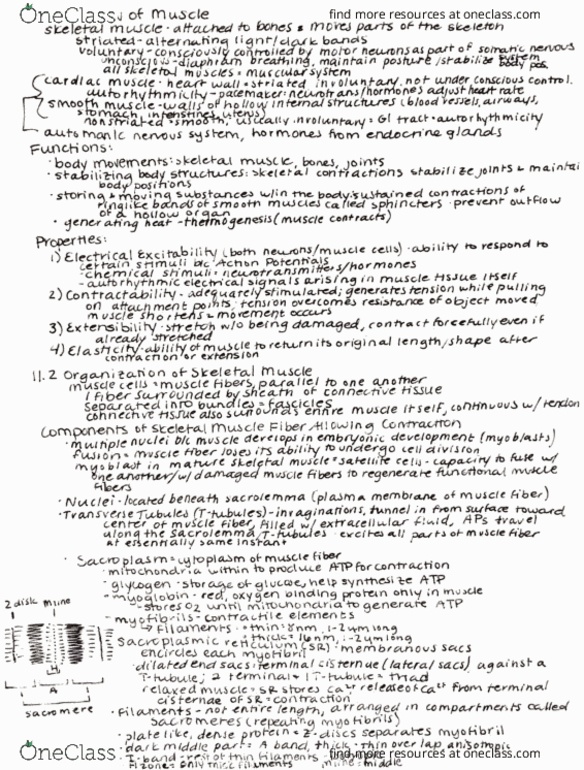 OneClass find more resources at oneclass.com
of Muscle
skeletal muscle - attached to bones = moves parts of the skeleton
striated - alternating light/dark bands
voluntary - consciously controlled by motor neurons as part of somatic nervous
unconscious - diaphragm breathing, maintain posture/stabilize body pos
system
all skeletal muscles = muscular system
cardiac muscle - heart wall = striated, involuntary, not under conscious control.
autorhythmicity - pacemaker: neurotrans/hormones adjust heart rate
smooth muscle - walls of hollow internal structures (blood vessels, airways,
stomach, intenstines, uterus)
nonstriated = smooth, usually involuntary = GI tract = autorhythmicity
automanic nervous system, hormones from endocrine glands
Functions:
· body movements: skeletal muscle, bones, joints
· stabilizing body structures: skeletal contractions stabilize joints & maintai
body positions
· storing & moving substances w/in the body: sustained contractions of
ringlike bands of smooth muscles called sphincters - prevent outflow
of a hollow organ
· generating heat - thermogenesis (muscle contracts)
Properties:
1) Electrical Excitability (both neurons/muscle cells) - ability to respond to
certain stimuli b/c Action Potentials
- chemical stimuli = neurotransmitters/hormones
- autorhythmic electrical signals arising in muscle tissue itself
2) Contractability - adequately stimulated; generates tension while pulling
on attachment points; tension overcomes resistance of object moved
muscle shortens = movement occurs
3) Extensibility - stretch w/o being damaged, contract forcefully even if
already stretched
4) Elasticity - ability of muscle to return its original length/shape after
contraction or extension
11.2 Organization of Skeletal Muscle
muscle cells = muscle fibers, parallel to one another
1 fiber surrounded by sheath of connective tissue
separated into bundles = fascicles
connective tissue also surrounds entire muscle itself, continuous w/ tendon
Components of Skeletal Muscle Fiber Allowing Contraction
· multiple nuclei b/c muscle develops in embryonic development (myoblasts)
fusion = muscle fiber loses its ability to undergo cell division
myoblast in mature skeletal muscle = satellite cells - capacity to fuse w/
one another/w/ damaged muscle fibers to regenerate functional muscle
fibers
· Nuclei - located beneath sacrolemma (plasma membrane of muscle fiber)
· Transverse Tubules (T-tubules) - invaginations, tunnel in from surface toward
center of muscle fiber, filled w/ extracellular fluid, APs travel
along the sacrolemma/T-tubules - excites all parts of muscle fiber
at essentially same instant
· Sacroplasm = cytoplasm of muscle fiber
· mitochondria within to produce ATP for contraction
· glycogen - storage of glucose, help synthesize ATP
· myoglobin - red, oxygen binding protein only in muscle
- stores O2 until mitochondria to generate ATP
- myofibrils - contractile elements
→ Filaments · thin: 8nm, 1-2μm long
· thick: 16nm, 1-2μm long
Sacroplasmic reticulum (SR) - membranous sacs
encircles each myofibril
· dilated end sacs: terminal cisternue (lateral sacs) against a
T-tubule; 2 terminal + 1 T-tubule = triad
relaxed muscle = SR stores Ca2+ release of Ca2+ from terminal
cisternae of SR = contraction
· Filaments - not entire length, arranged in compartments called
Sacrometes (repeating myofibrils)
· plate like, dense protein = Z-discs separates myofibril
· dark middle part = A band, thick - thin overlap anisotropic
· I-band - rest of thin filaments
H zone = only thick filaments mline = middle
Z disk mline
H
A
sacromere
OneClass find more resources at oneclass.com